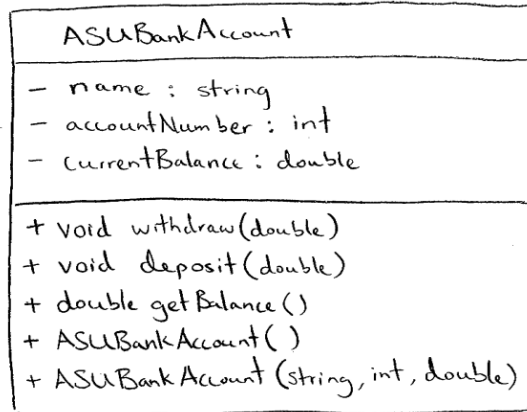 ASUBankAccount
- name : string
- accountNumber : int
- currentBalance : double
+ void withdraw(double)
+ void deposit(double)
+ double getBalance()
+ ASUBankAccount( )
+ ASUBankAccount (string, int, double)